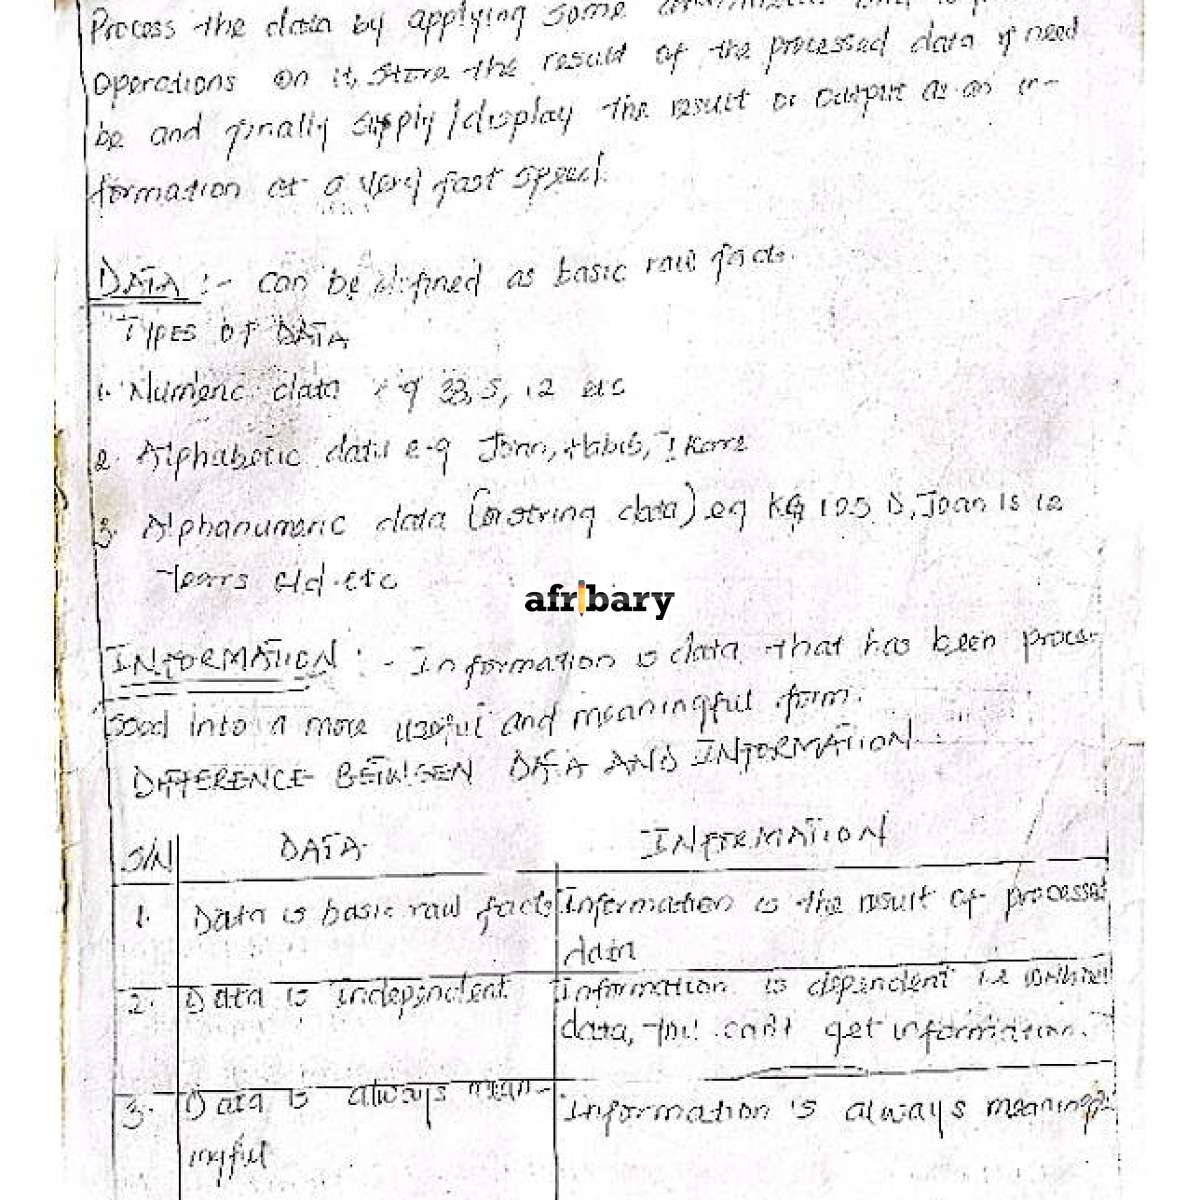 Process the data by applying some
operations on it, store the result of the processed data if need
be and finally supply/display the result or output as an in-
formation at a very fast speed.
DATA :- can be defined as basic raw facts.
TYPES OF DATA
1. Numeric data e.g 33, 5, 12 etc
2. Alphabetic data e-g John, Habib,
3. Alphanumeric data (or string data) eg KG 105 D, Joan is 12
years old.etc
afribary
INFORMATION :- Information is data that has been proce-
ssed into a more useful and meaningful form.
DIFFERENCE BETWEEN DATA AND INFORMATION
S/N DATA INFORMATION
1. Data is basic raw facts Information is the result of processed
data
2. Data is independent Information is dependent i.e without
data, you can't get information.
3. Data is always mean- Information is always meaningf-
ingful